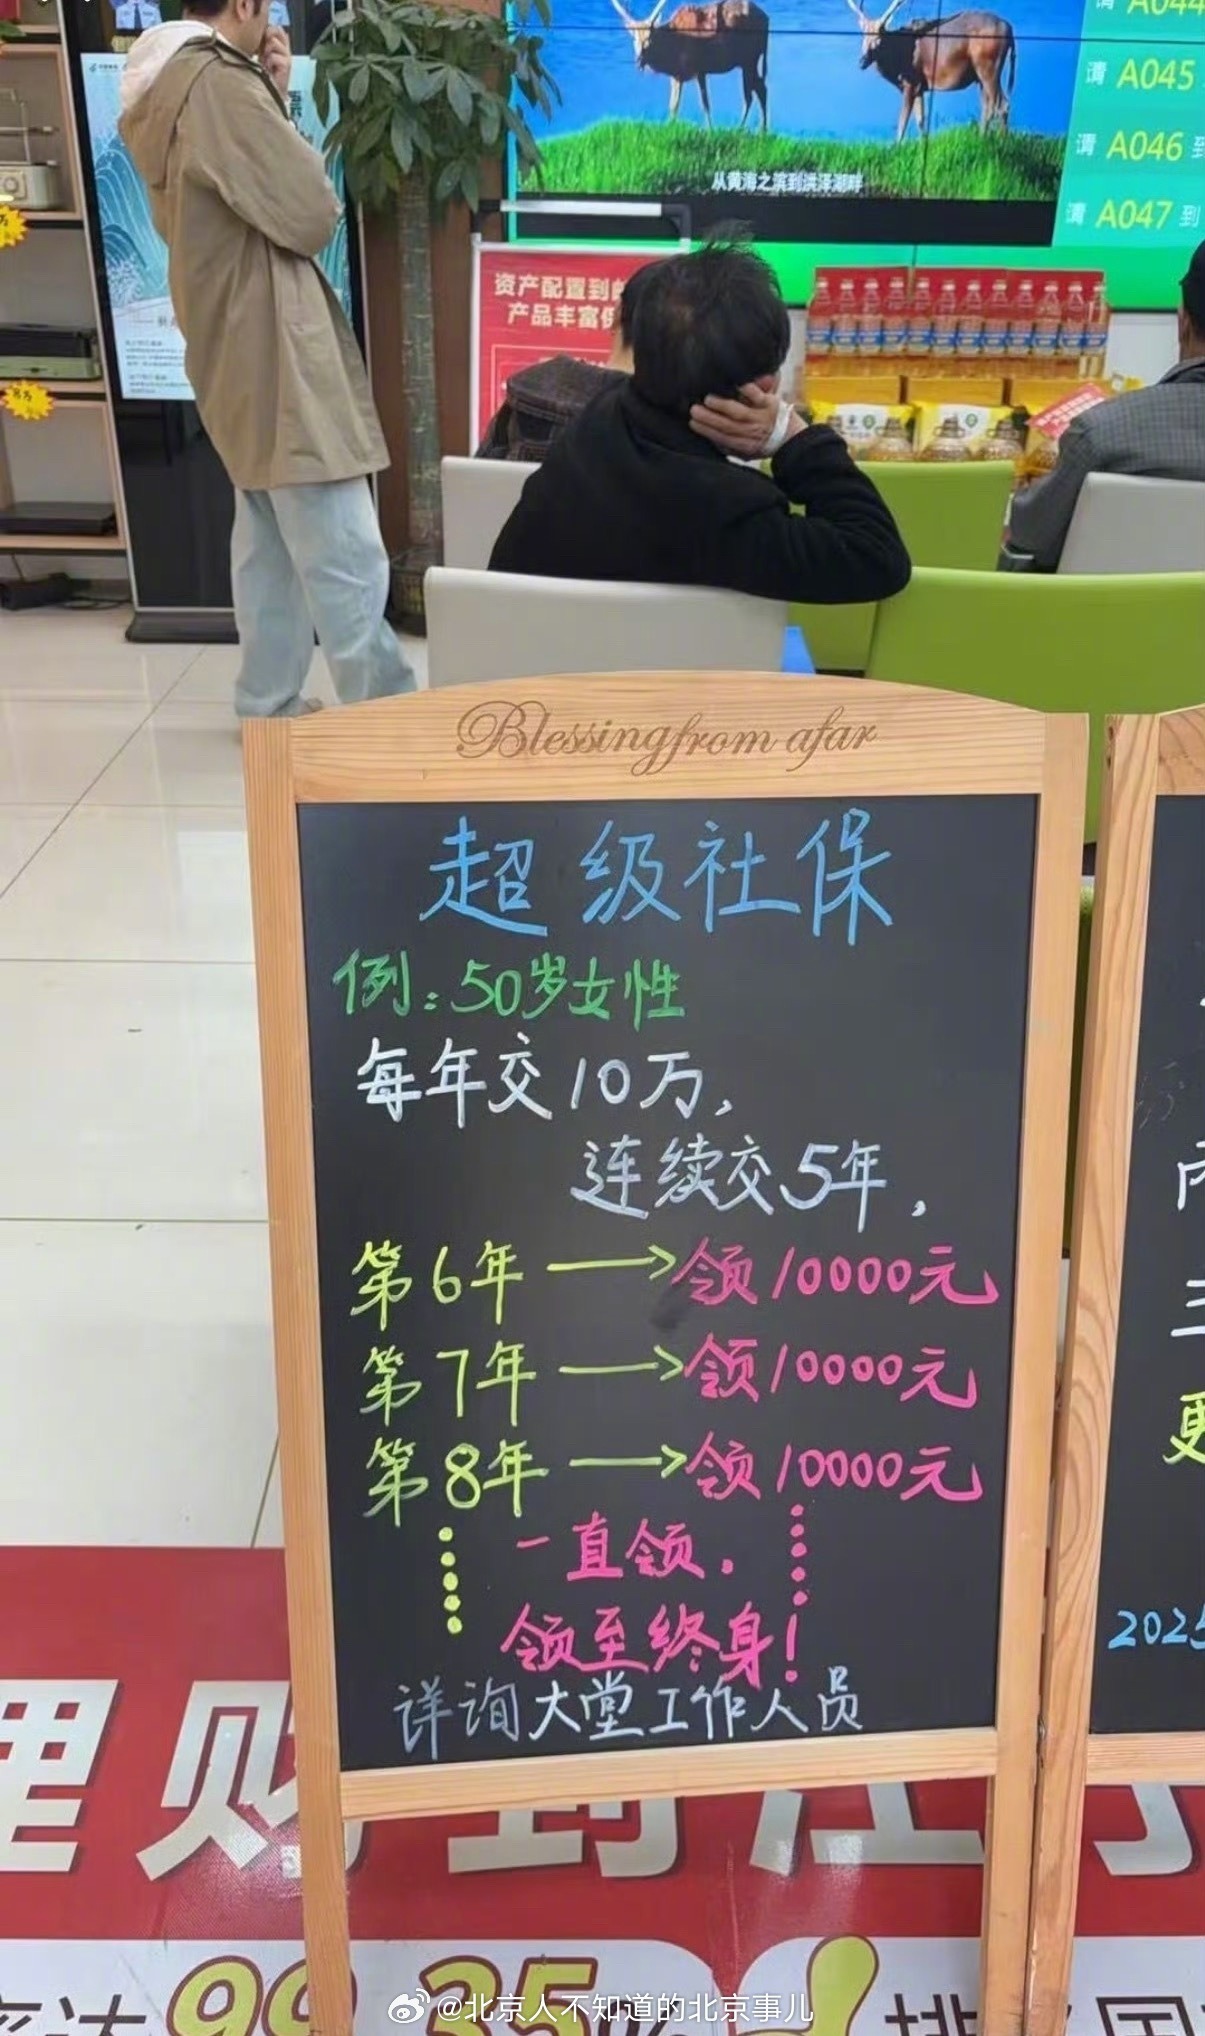 请 A044
请 A045
请 A046 到
请 A047 到
从黄海之滨到洪泽湖畔
资产配置到邮
产品丰富
Blessing from afar
超级社保
例：50岁女性
每年交10万，
连续交5年，
第6年→领10000元
第7年→领10000元
第8年→领10000元
一直领，
领至终身！
详询大堂工作人员
2025
理财到江
99.35%
@北京人不知道的北京事儿